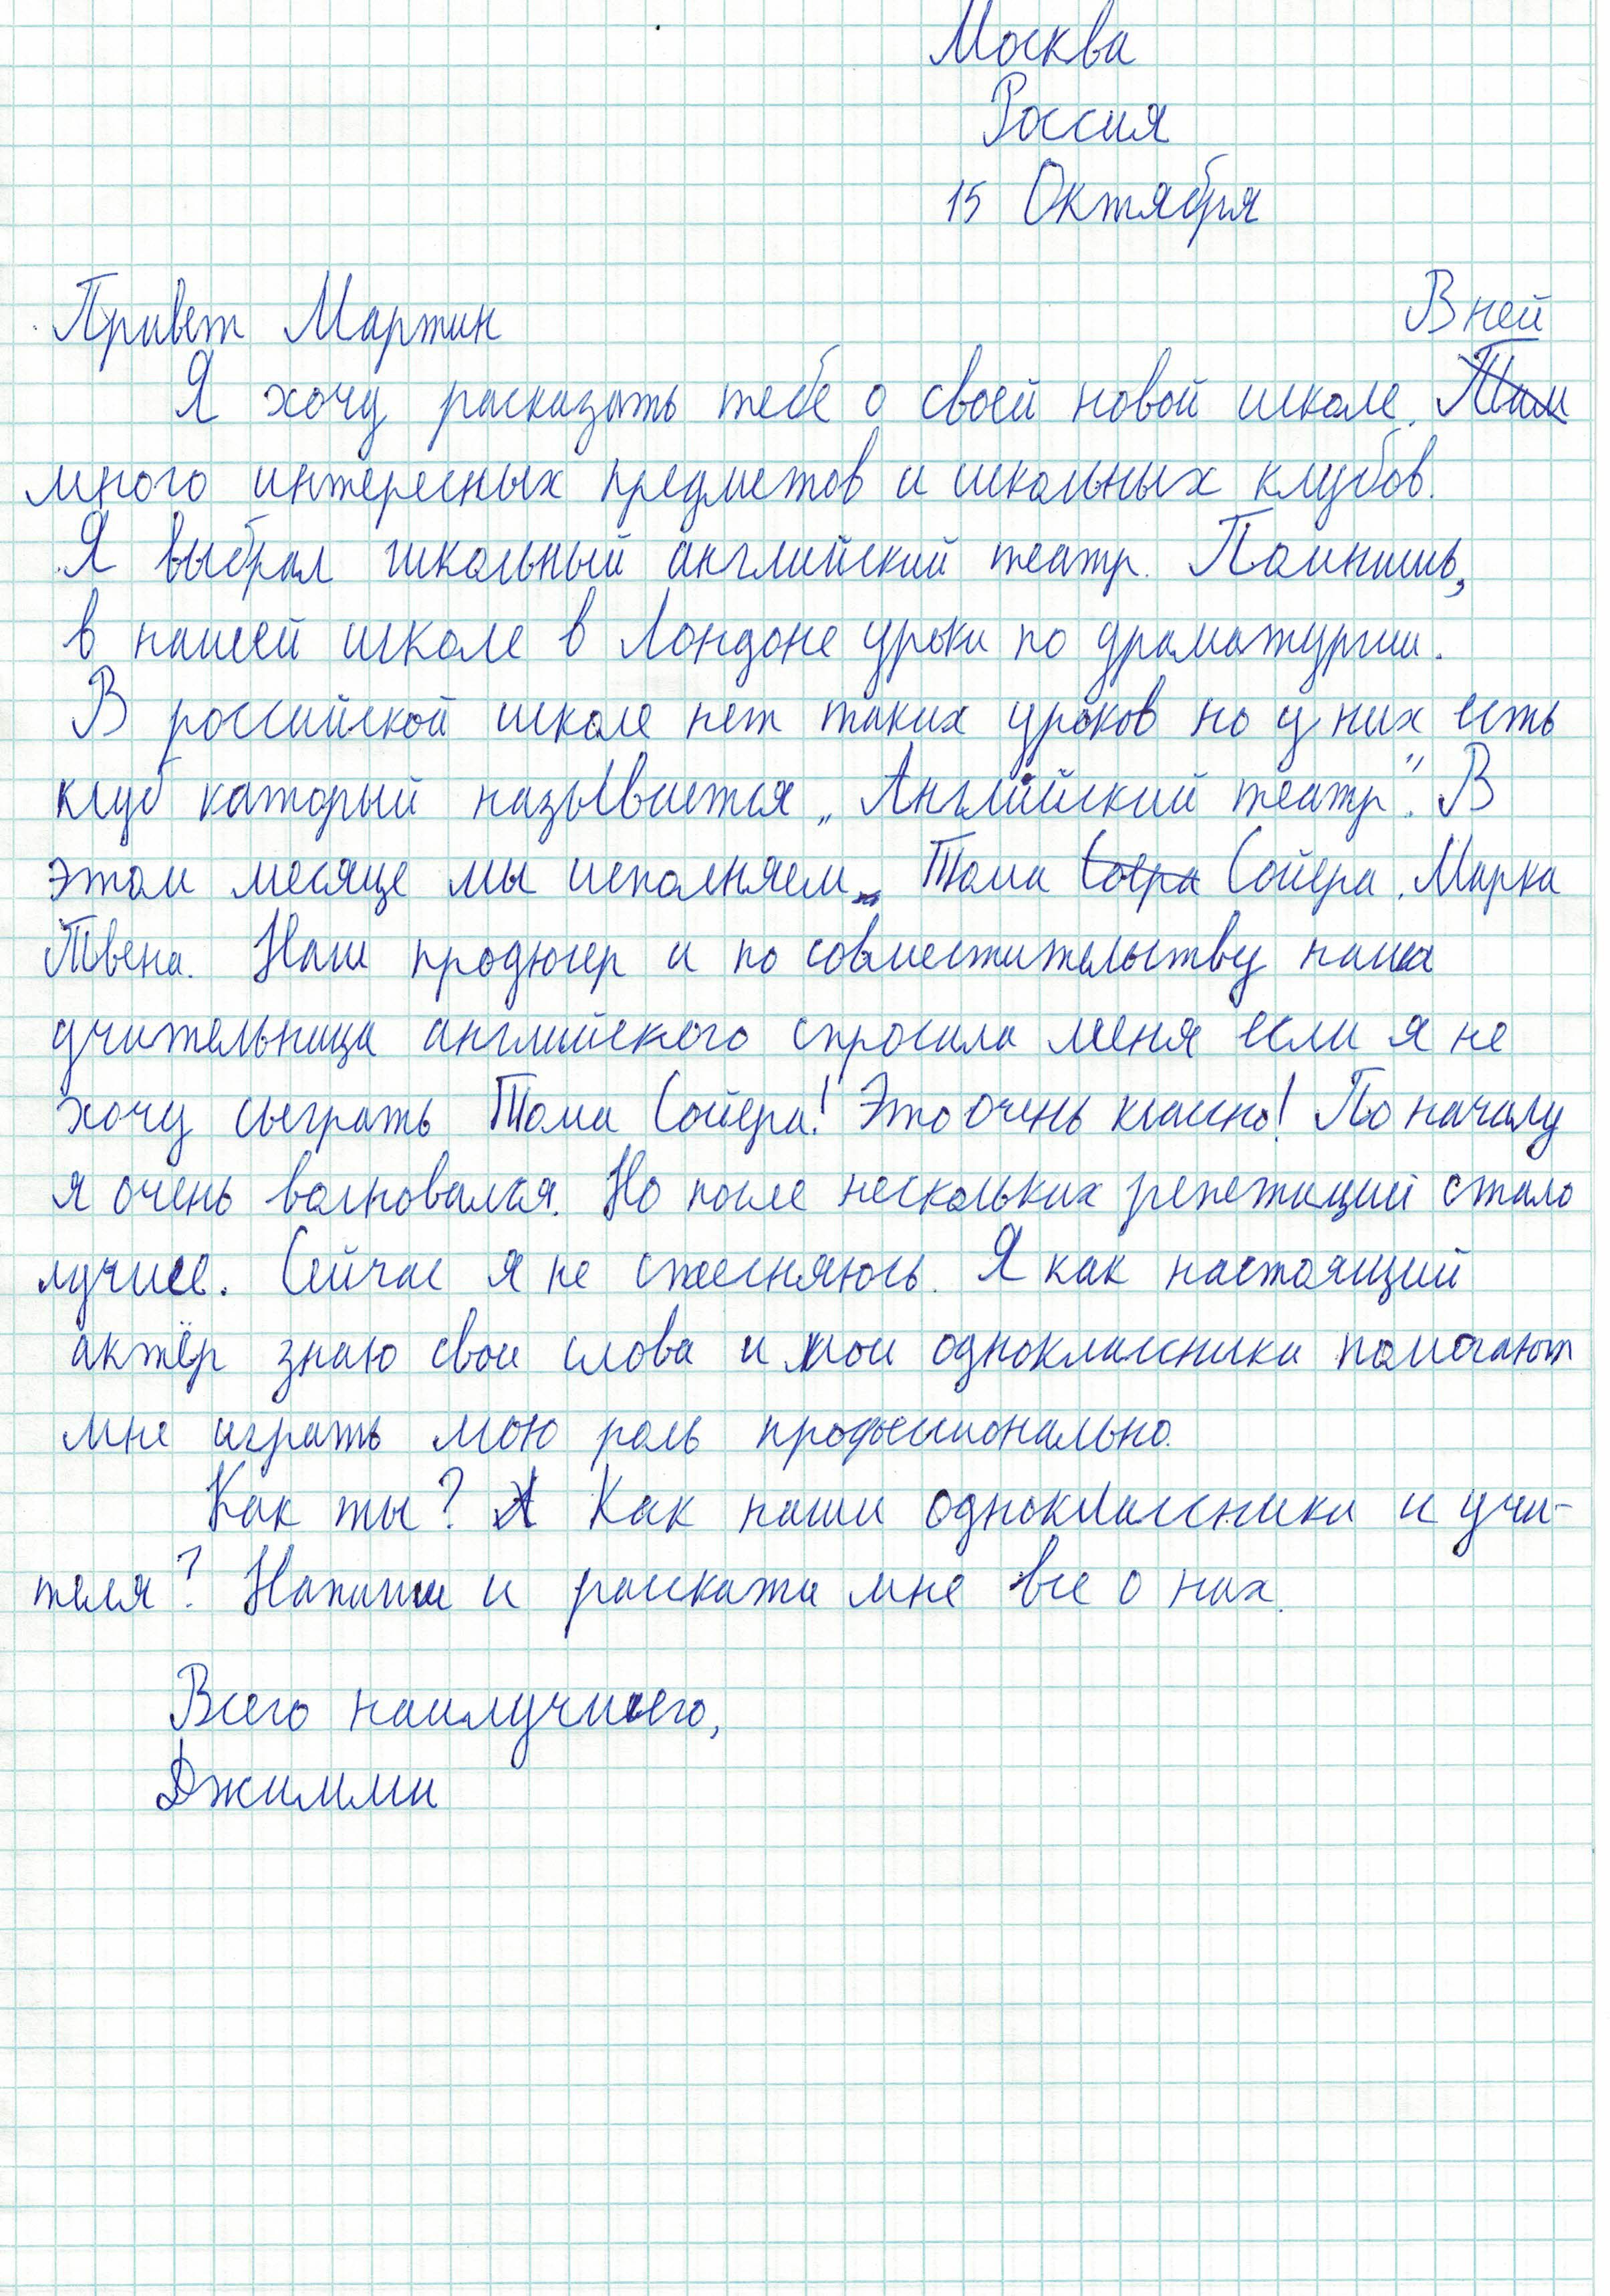 Москва
Россия
15 Октября
Привет Мартин
В ней
Я хочу расказать тебе о своей новой школе. Там
много интересных предметов и школьных клубов.
Я выбрал школьный английский театр. Помнишь,
в нашей школе в Лондоне уроки по драматургии.
В российской школе нет таких уроков но у них есть
клуб каторый называется „Английский театр". В
этом месяце мы исполняем „Тома Соера Сойера. Марка
Твена. Наш продюсер и по совместительству наша
учительница английского спросила меня если я не
хочу сыграть Тома Сойера! Это очень классно! По началу
я очень волновался. Но после нескольких репетиций стало
лучше. Сейчас я не стесняюсь. Я как настоящий
актёр знаю свои слова и мои одноклассники помогают
мне играть мою роль професионально.
Как ты? А Как наши одноклассники и учи-
теля? Напиши и раскажи мне все о них.
Всего наилучшего,
Джимми